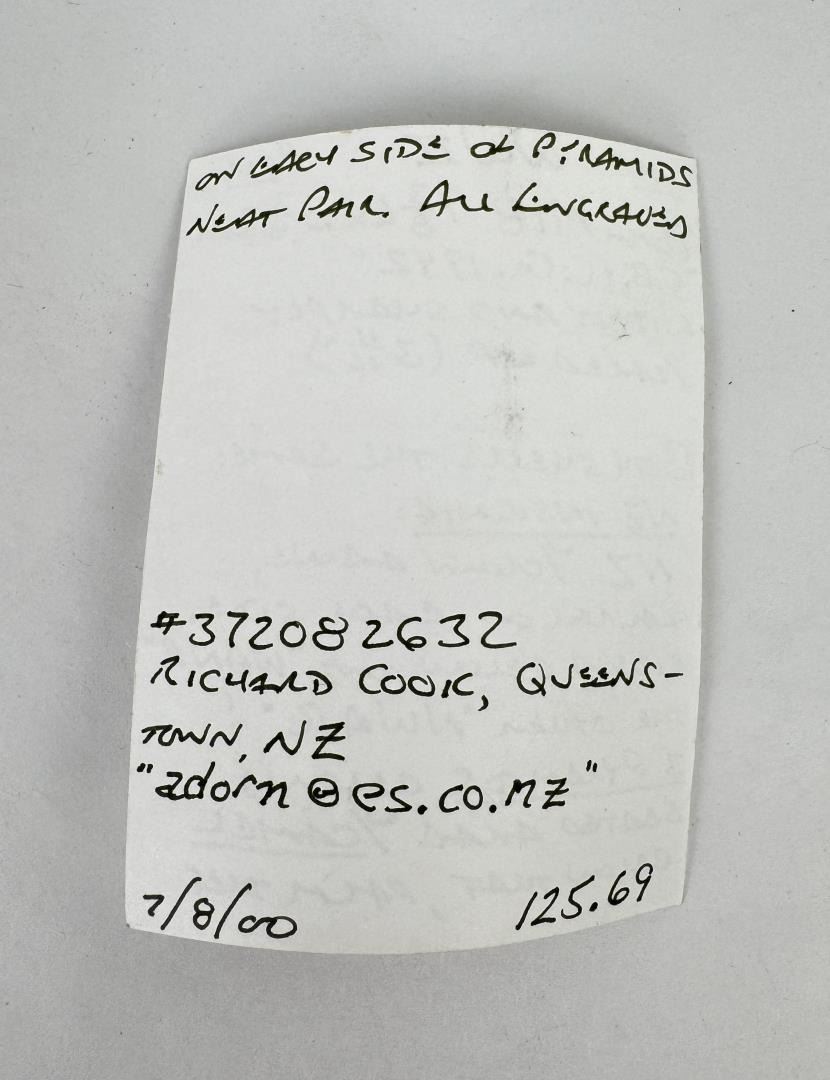 ON EACH SIDE OF PYRAMIDS
NEAT PAIR. ALL ENGRAVED
#372082632
RICHARD COOK, QUEENS-
TOWN, NZ
"adorn@es.co.nz"
7/8/00 125.69